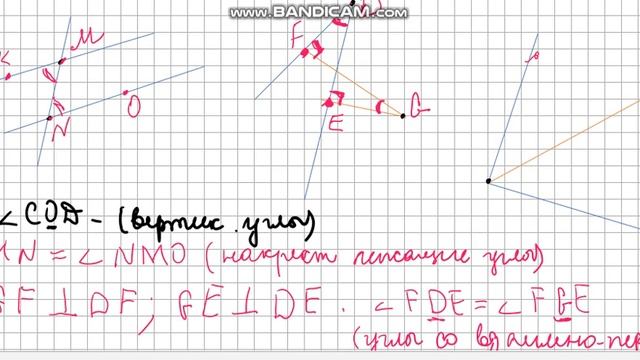 WWW.BANDICAM.COM
F
M
K
G
N
O
E
∠COD - (вертик. углы)
MN = ∠NMO (накрест лежащие углы)
GF⊥DF; GE⊥DE. ∠FDE = ∠FGE
(углы со взаимно-пер